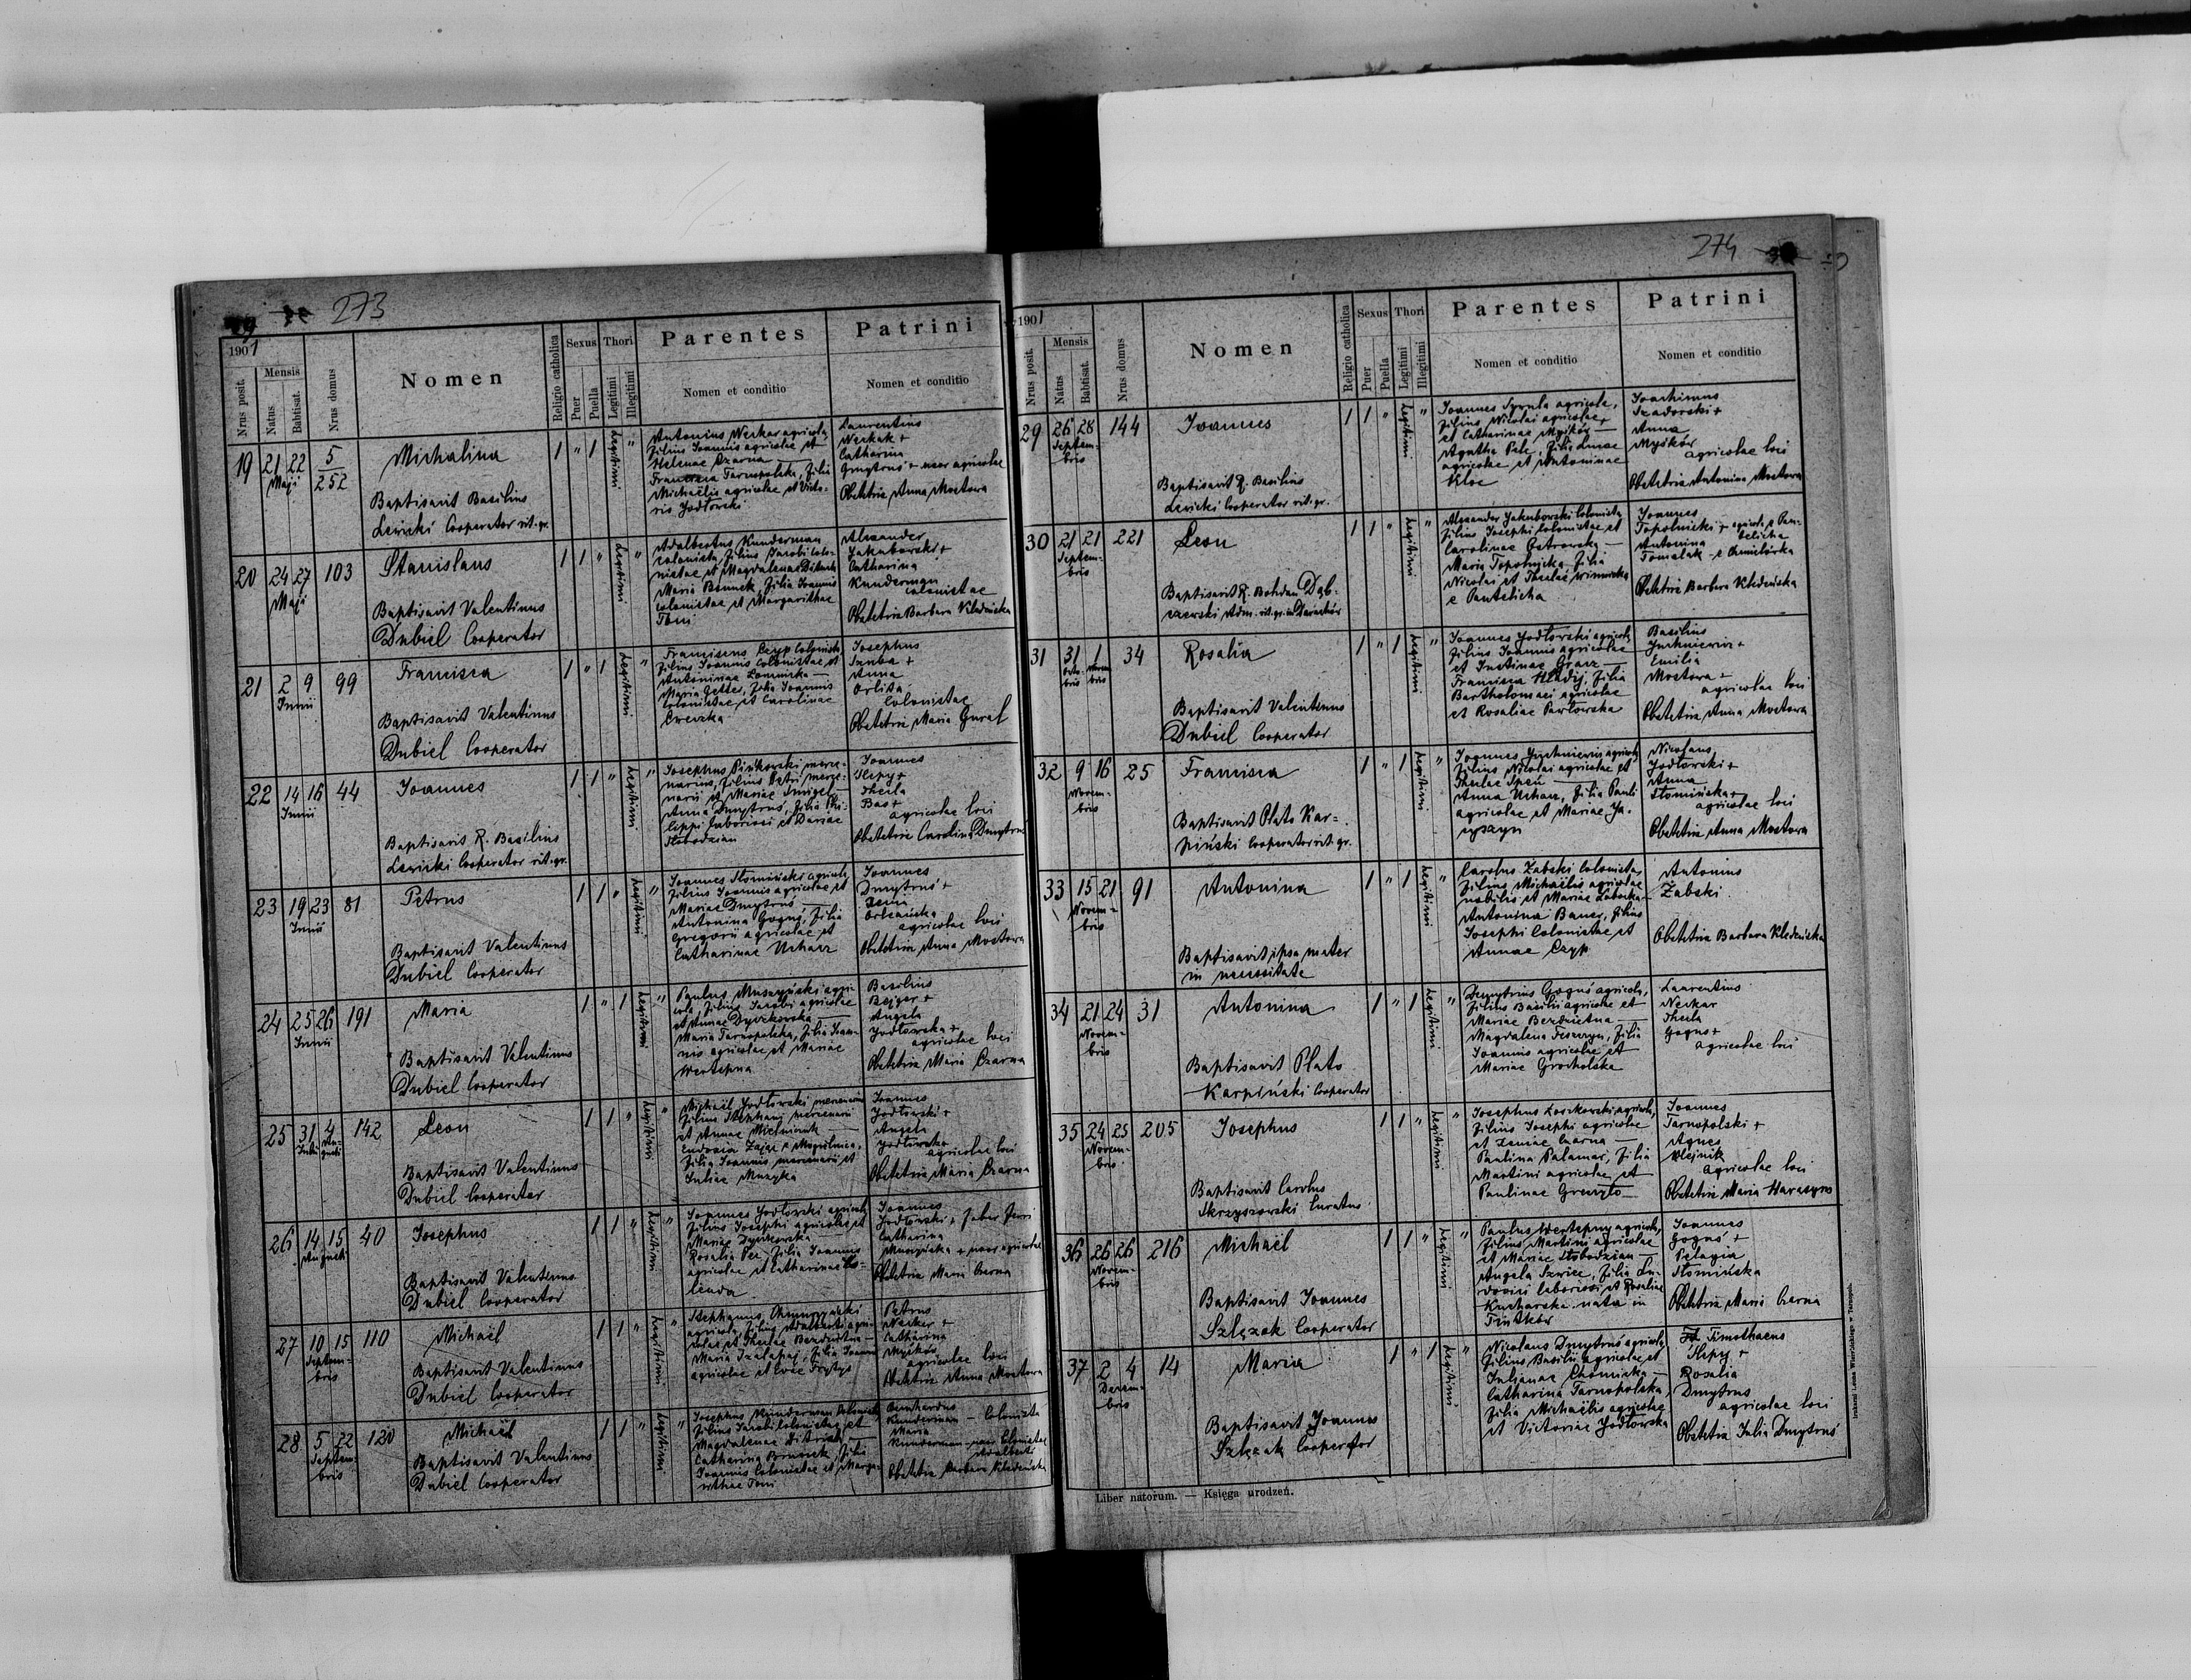 273
1901
Nrus posit.
Mensis
Natus
Babtisat.
Nrus domus
Nomen
Religio catholica
Sexus
Puer
Puella
Thori
Legitimi
Illegitimi
Parentes
Nomen et conditio
Patrini
Nomen et conditio
19 21 22 Maji 5/252
Michalina
Baptisavit Basilius
Lewicki Cooperator rit. gr.
1 " 1 legitimi "
Antonius Neckar agricola
filius Joannis agricolae et
Helenae Czarna —
Francisca Tarnopolska, filia
Michaëlis agricolae et Victo-
ria Jodłowski
Laurentius
Neckak +
Catharina
Dmytruś + uxor agricolae
Obstetrix Anna Mostowa
20 24 27 Maji 103
Stanislaus
Baptisavit Valentinus
Dubiel Cooperator
1 1 " legitimi "
Adalbertus Kunderman
colonista, filius Jacobi colo-
nistae et Magdalenae
Maria filia Joannis
colonistae et Margarithae
Toni
Alexander
Jakubowski +
Catharina
Kunderman
colonistae
Obstetrix Barbara Kledeńska
21 2 9 Junii 99
Francisca
Baptisavit Valentinus
Dubiel Cooperator
1 " 1 legitimi "
Franciscus Czyp Colonista
filius Joannis Colonistae et
Antoninae
Maria Getter, filia Joannis
Colonistae et Carolinae
Josephus
+
Anna
Orlita
Colonistae
Obstetrix Maria Gural
22 14 16 Junii 44
Joannes
Baptisavit R. Basilius
Lewicki Cooperator rit. gr.
1 1 " legitimi "
Josephus Pińkowski merce-
narius, filius Petri merce-
narii et Mariae Smigel —
Anna Dmytruś, filia Phi-
lippi laboriosi et Dariae
Słobodzian
Joannes
Slepy +
Thecla
Bas +
agricolae loci
Obstetrix Carolina Dmytrus
23 19 23 Junii 81
Petrus
Baptisavit Valentinus
Dubiel Cooperator
1 1 " legitimi "
Joannes Słomiński agricola
filius Joannis agricolae et
Mariae Dmytruś —
Antonina Goguś, filia
Gregorii agricolae et
Catharinae Urharz
Joannes
Dmytruś +
Xenia
Orleańska
agricolae loci
Obstetrix Anna Mostowa
24 25 26 Junii 191
Maria
Baptisavit Valentinus
Dubiel Cooperator
1 " 1 legitimi "
Paulus Muszyński agri-
cola, filius Jacobi agricolae
et Annae Dyczkowska —
Maria Tarnopolska, filia Joan-
nis agricolae et Mariae
Wertepna
Basilius
Bejger +
Angela
Jodłowska +
agricolae loci
Obstetrix Maria Czarna
25 31 Julii 4 Augusti 142
Leon
Baptisavit Valentinus
Dubiel Cooperator
1 1 " legitimi "
Michaël Jodłowski mercenarius
filius Stephani mercenarii
et Annae Mielniczuk —
Eudoxia Zając e Mogielnica,
filia Joannis mercenarii et
Juliae Muzyka
Joannes
Jodłowski +
Angela
Jodłowska
agricolae loci
Obstetrix Maria Czarna
26 14 15 Augusti 40
Josephus
Baptisavit Valentinus
Dubiel Cooperator
1 1 " legitimi "
Joannes Jodłowski agricola
filius Josephi agricolae et
Mariae Dyczkowska —
Rosalia Pec, filia Joannis
agricolae et Catharinae Ko-
lenda
Joannes
Jodłowski + faber ferri
Catharina
Muszyńska + uxor agricolae
Obstetrix Maria Czarna
27 10 15 Septembris 110
Michaël
Baptisavit Valentinus
Dubiel Cooperator
1 1 " legitimi "
Stephanus
agricola, filius Adalberti agri-
colae et Theclae Bezdietna —
Maria Szałapaj, filia Joannis
agricolae et Evae Frytys
Petrus
Neckar +
Catharina
Myśków
agricolae loci
Obstetrix Anna Mostowa
28 5 22 Septembris 120
Michaël
Baptisavit Valentinus
Dubiel Cooperator
1 1 " legitimi "
Josephus Kunderman Colonista
filius Jacobi Colonistae et
Magdalenae Ditrich —
Catharina filia
Joannis Colonistae et Marga-
rithae Toni
Bernhardus
Kunderman — Colonista
Maria
Kunderman uxor Colonistae
Adalberti
Obstetrix Barbara Kledeńska
274
1901
Nrus posit.
Mensis
Natus
Babtisat.
Nrus domus
Nomen
Religio catholica
Sexus
Puer
Puella
Thori
Legitimi
Illegitimi
Parentes
Nomen et conditio
Patrini
Nomen et conditio
29 26 28 Septembris 144
Joannes
Baptisavit R. Basilius
Lewicki Cooperator rit. gr.
1 1 " legitimi "
Joannes agricola,
filius Nicolai agricolae
et Catharinae Myśków —
Agatha Pele, filia Lucae
agricolae et Antoninae
Kloc
Joachimus
Szadorski +
Anna
Myśków
agricolae loci
Obstetrix Antonina Mostowa
30 21 21 Septembris 221
Leon
Baptisavit R. Bohdan Dąb-
czewski Adm. rit. gr. in Darachów
1 1 " legitimi "
Alexander Jakubowski Colonista
filius Josephi Colonistae et
Carolinae Ostrowska —
Maria Topolnicka, filia
Nicolai et Theclae Winnicka
e Panteliche
Joannes
Topolnicki + agricola e Pan-
telicha
Antonina
Tomalak — e Chmielówka
Obstetrix Barbara Kledeńska
31 31 Octobris 1 Novembris 34
Rosalia
Baptisavit Valentinus
Dubiel Cooperator
1 " 1 legitimi "
Joannes Jodłowski agricola
filius Joannis agricolae
et Justinae Gracz —
Francisca Hładij, filia
Bartholomaei agricolae
et Rosaliae Pawłowska
Basilius
Juchniewicz +
Emilia
Mostowa +
agricolae loci
Obstetrix Anna Mostowa
32 9 16 Novembris 25
Francisca
Baptisavit Plato Kar-
piński Cooperator rit. gr.
1 " 1 legitimi "
Joannes Juchniewicz agricola
filius Nicolai agricolae et
Theclae Spen
Anna Urharz, filia Pauli
agricolae et Mariae Ja-
cyszyn
Nicolaus
Jodłowski +
Anna
Słomińska +
agricolae loci
Obstetrix Anna Mostowa
33 15 21 Novembris 91
Antonina
Baptisavit ipsa mater
in necessitate
1 " 1 legitimi "
Carolus Żabski Colonista
filius Michaëlis agricolae
nobilis et Mariae —
Antonina Bauer, filia
Josephi Colonistae et
Annae Czyp
Antonius
Żabski
Obstetrix Barbara Kledeńska
34 21 24 Novembris 31
Antonina
Baptisavit Plato
Karpiński Cooperator
1 " 1 legitimi "
Demetrius Goguś agricola,
filius Basilii agricolae et
Mariae Bezdzietna —
Magdalena Feszczyn, filia
Joannis agricolae et
Mariae Grocholska
Laurentius
Neckar
Thecla
Gogus +
agricolae loci
35 24 25 Novembris 205
Josephus
Baptisavit Carolus
Skrzyszowski Curatus
1 1 " legitimi "
Josephus agricola,
filius Josephi agricolae
et Xeniae Czarna —
Paulina Palamar, filia
Martini agricolae et
Paulinae
Joannes
Tarnopolski +
Agnes
Klejnik
agricolae loci
Obstetrix Maria Harasym
36 26 26 Novembris 216
Michaël
Baptisavit Joannes
Szlęzak Cooperator
1 1 " legitimi "
Paulus Wertepny agricola,
filius Martini agricolae
et Mariae Słobodzian —
Angela Szwiec, filia Lu-
dovici laboriosi et Rosaliae
Kucharska nata in
Joannes
Goguś +
Pelagia
Słomińska
Obstetrix Maria Czarna
37 2 4 Decembris 14
Maria
Baptisavit Joannes
Szlęzak Cooperator
1 " 1 legitimi "
Nicolaus Dmytruś agricola,
filius Basilii agricolae et
Julianae Chomicka —
Catharina Tarnopolska,
filia Michaëlis agricolae
et Victoriae Jodłowska
Timothaeus
Slepy +
Rosalia
Dmytrus
agricolae loci
Obstetrix Julia Dmytruś
Liber natorum. — Księga urodzeń.